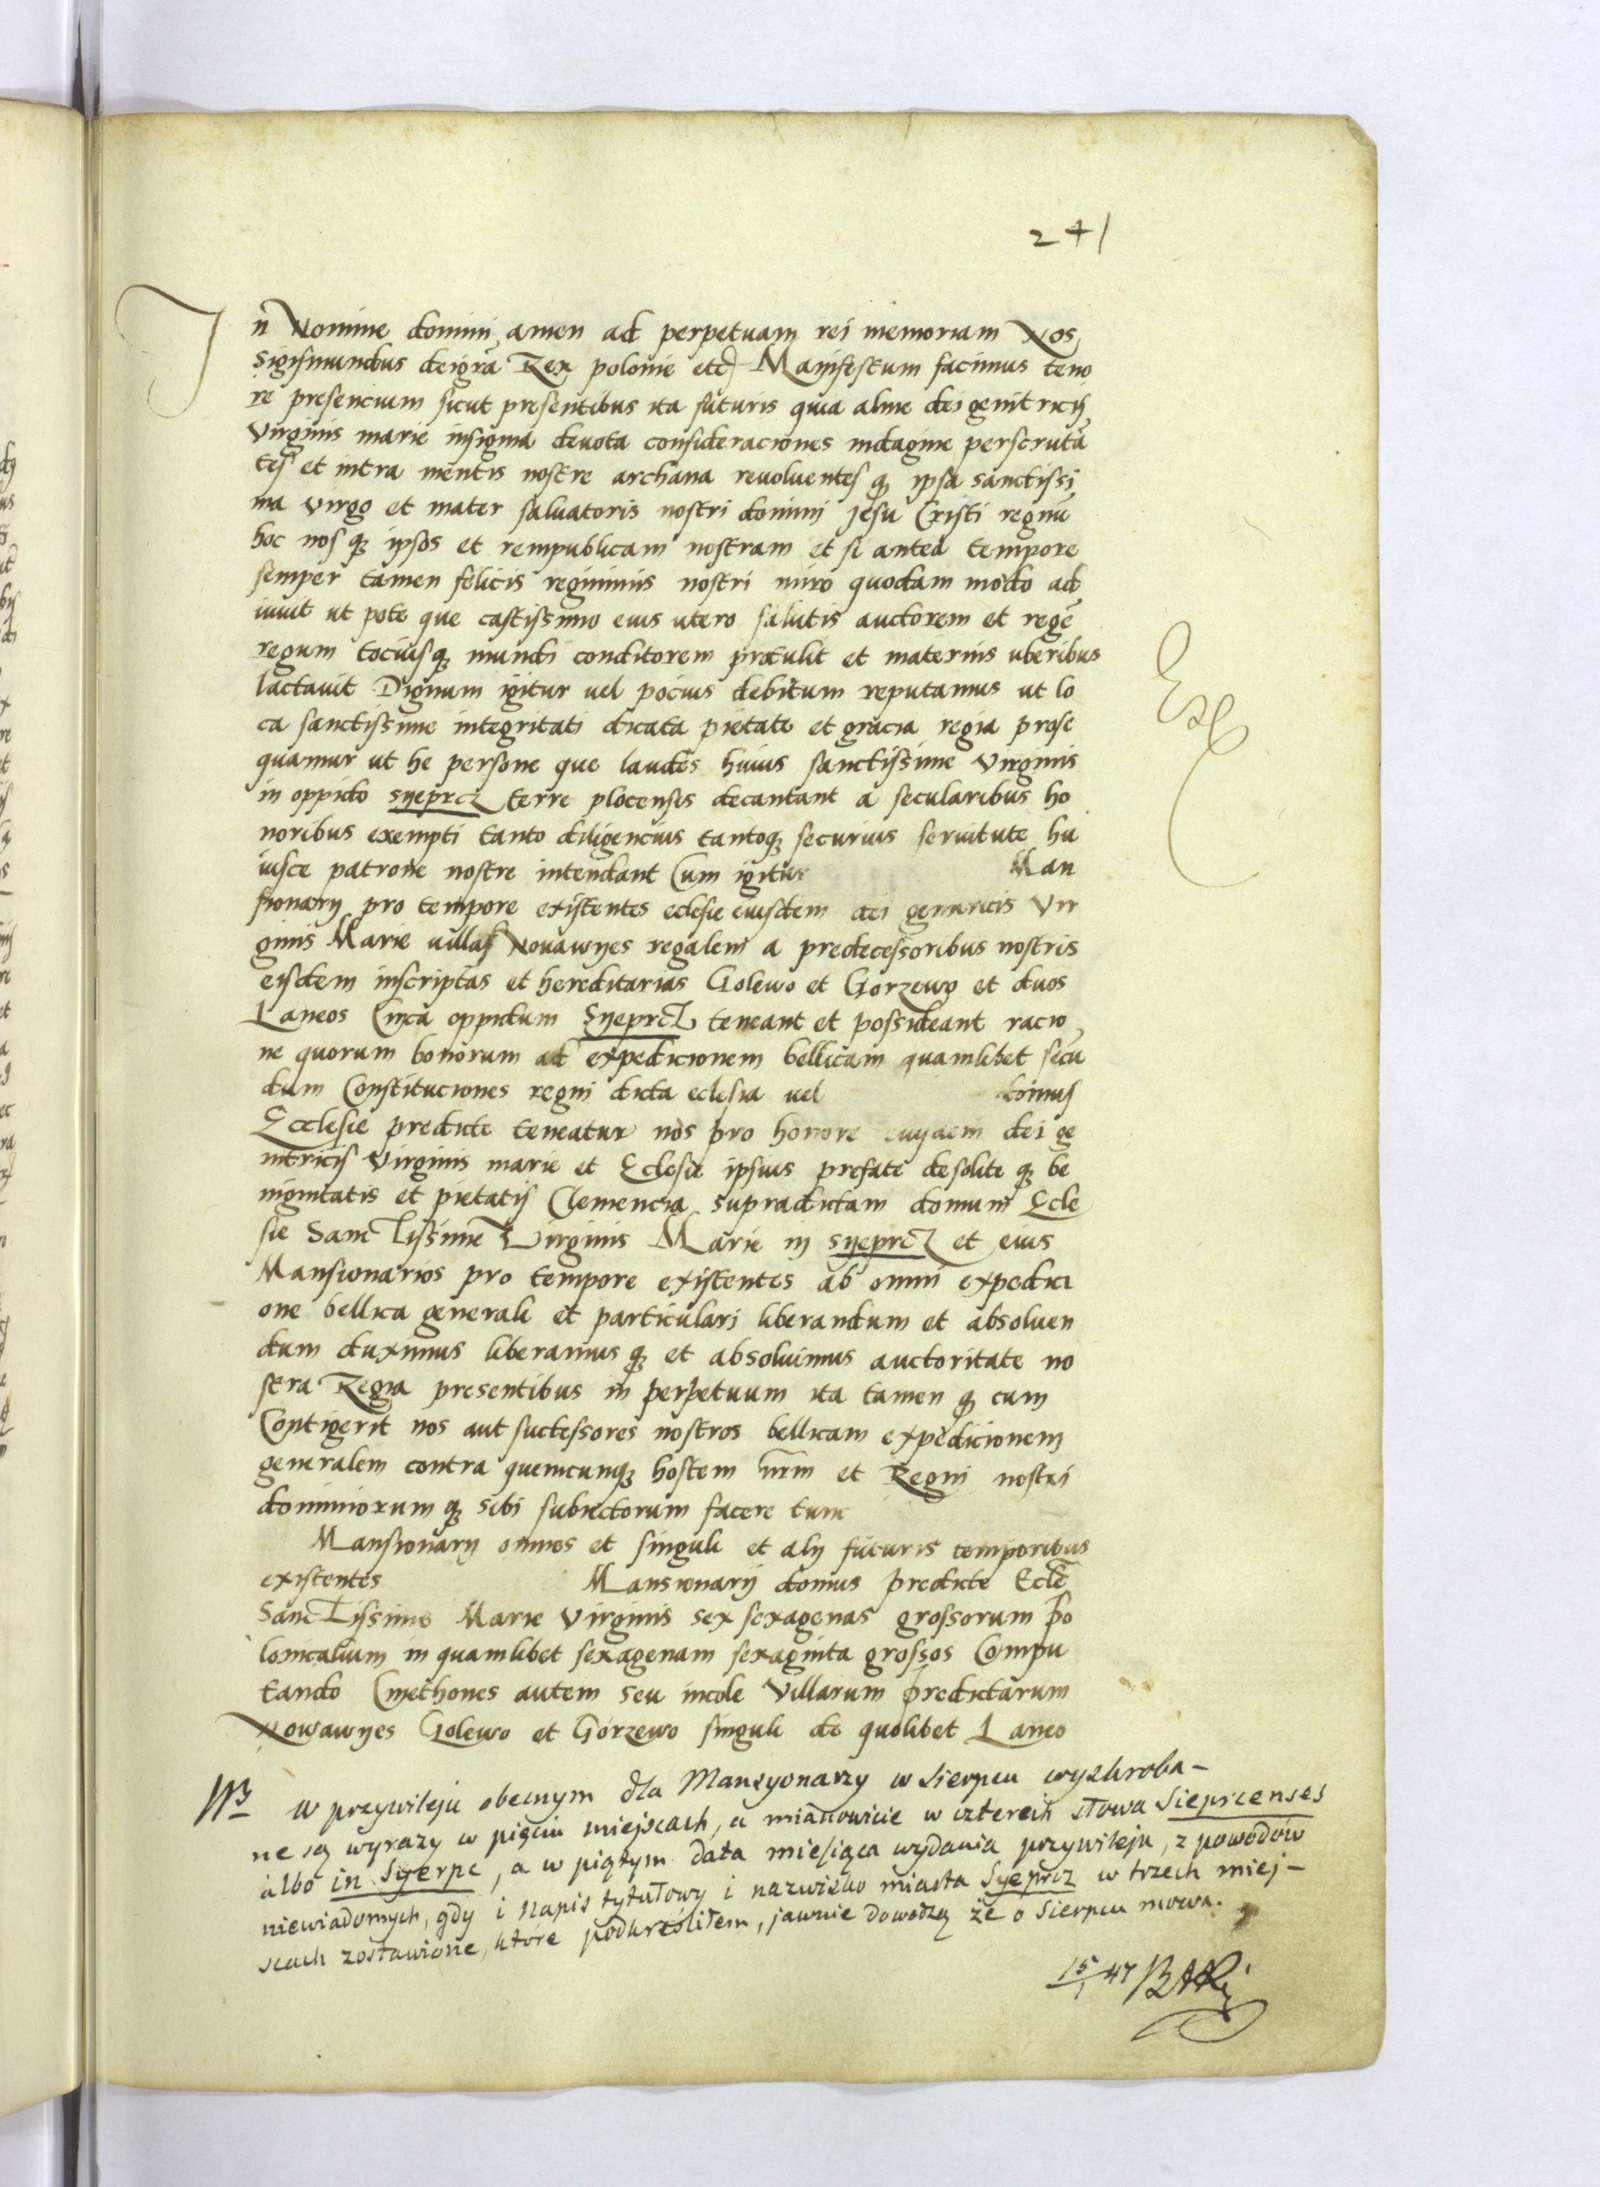 241
In Nomine domini amen ad perpetuam rei memoriam Nos
Sigismundus dei grã Rex polonie etc Manifestum facimus teno
re presencium sicut presentibus ita futuris quia alme dei genitricis
Virginis marie insignia deuota consideraciones indagine perscrutã
tes et intra mentis nostre archana reuoluentes qȝ ipsa sanctissi
ma virgo et mater saluatoris nostri domini Jesu Cristi regnũ
hoc nos qȝ ipsos et rempublicam nostram et si antea tempore
semper tamen felicis regiminis nostri miro quodam modo ad
iuuit ut pote que castissimo eius utero salutis auctorem et regẽ
regum tociusqȝ mundi conditorem protulit et maternis uberibus
lactauit Dignum igitur uel pocius debitum reputamus ut lo
ca sanctissime integritati dicata pietate et gracia regia prose
quamur ut he persone que laudes huius sanctissime Virginis
in oppido syeprcz terre plocensis decantant a secularibus ho
noribus exempti tanto diligencius tantoqȝ securius seruitute hu
iusce patrone nostre intendant Cum igitur Man
sionarij pro tempore existentes eclesie eiusdem dei genitricis Vir
ginis Marie uillas Nouawyes regalem a predecessoribus nostris
eisdem inscriptas et hereditarias Golewo et Gorzewo et duos
Laneos Circa oppidum Syeprcz teneant et possideant racio
ne quorum bonorum ad expedicionem bellicam quamlibet secũ
dum Constituciones regni dicta eclesia uel domus
Ecclesie predicte teneatur nos pro honore euisdem dei ge
nitricis Virginis marie et Eclesie ipsius prefate de solite qȝ be
nignitatis et pietatis Clemencia supradictam domum Ecle
sie Sanctissime Virginis Marie in syeprcz et eius
Mansionarios pro tempore existentes ab omni expedici
one bellica generali et particulari liberandum et absoluen
dum duximus liberamus qȝ et absoluimus auctoritate no
stra Regia presentibus in perpetuum ita tamen qȝ cum
Contigerit nos aut successores nostros bellicam expedicionem
generalem contra quemcunqȝ hostem nr̃m et Regni nostri
dominiorum qȝ sibi subiectorum facere tunc
Mansionarij omnes et singuli et alij futuris temporibus
existentes Mansionarij domus predicte Eclẽ
Sanctissime Marie Virginis sex sexagenas grossorum po
lonicalium in quamlibet sexagenam sexaginta grossos Compu
tando Cmethones autem seu incole Villarum predictarum
Nowawyes Golewo et Gorzewo singuli de quolibet Laneo
NB w przywileju obecnym dla Mansyonarzy w Sierpcu wyskroba-
ne są wyrazy w pięciu miejscach, a mianowicie w czterech słowa Sieprcenses
albo in Syerpc, a w piątym data miesiąca wydania przywileju, z powodów
niewiadomych, gdy i napis tytułowy i nazwisko miasta Syeprcz w trzech miej-
scach zostawione, które podkreśliłem, jawnie dowodzą że o Sierpcu mowa.
15/1 47